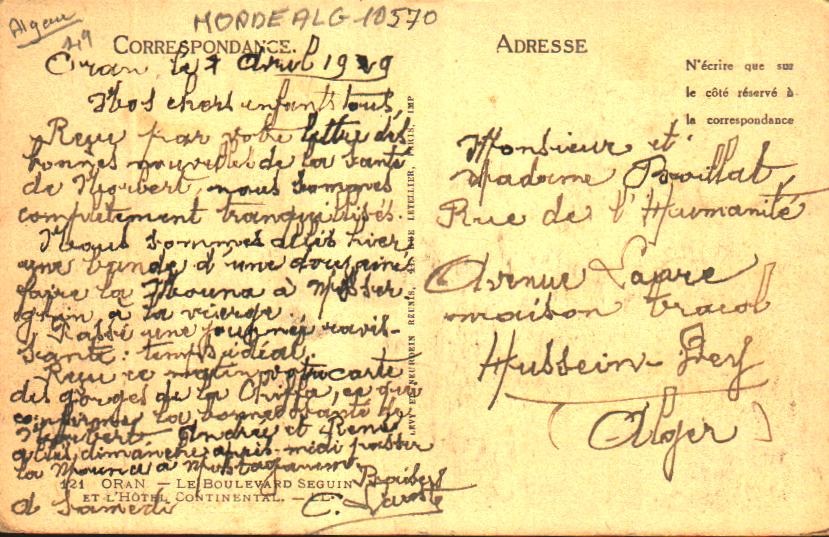 Algérie
MORDEALG-10570
CORRESPONDANCE.
Oran, le 7 Avril 1929
Nos chers enfants tous,
Reçu par votre lettre des
bonnes nouvelles de la santé
de Norbert, nous sommes
complètement tranquillisés.
Nous sommes allés hier
une bande d'une douzaine
faire la Mouna à Misser-
ghin, à la vierge.
Passé une journée ravis-
sante: temps idéal.
Reçu ce matin votre carte
des gorges de la Chiffa, ce qui
confirme la bonne santé de
Norbert. André et René
allés dimanche après-midi passer
la Mouna à Mostaganem
à Samedi
121 ORAN — LE BOULEVARD SEGUIN
ET L'HÔTEL CONTINENTAL. — LL.
LÉVY ET NEURDEIN RÉUNIS, 44, RUE LETELLIER, PARIS, IMP
ADRESSE
N'écrire que sur
le côté réservé à
la correspondance
Monsieur et
Madame Bouillat,
Rue de l'Humanité
Avenue
maison
Hussein-Dey
(Alger)